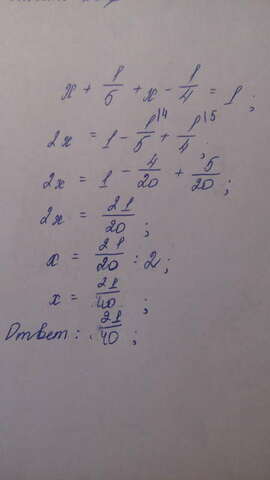 x + 1/5 + x - 1/4 = 1 ;
2x = 1 - 1/5\4 + 1/4\5 ;
2x = 1 - 4/20 + 5/20 ;
2x = 21/20 ;
x = 21/20 : 2 ;
x = 21/40 ;
Ответ: 21/40 ;